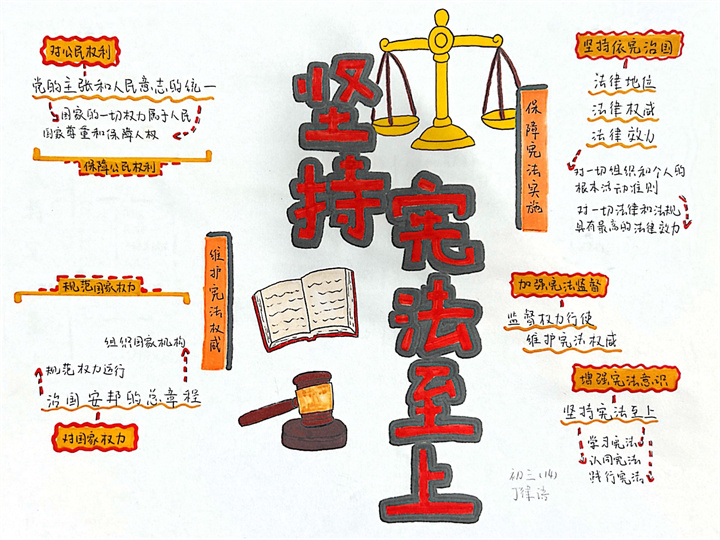 对公民权利
党的主张和人民意志的统一
国家的一切权力属于人民
国家尊重和保障人权
保障公民权利
规范国家权力
组织国家机构
规范权力运行
治国安邦的总章程
对国家权力
维护宪法权威
坚持
宪法至上
保障宪法实施
坚持依宪治国
法律地位
法律权威
法律效力
对一切组织和个人的
根本活动准则
对一切法律和法规
具有最高的法律效力
加强宪法监督
监督权力行使
维护宪法权威
增强宪法意识
坚持宪法至上
学习宪法
认同宪法
践行宪法
初三(14)